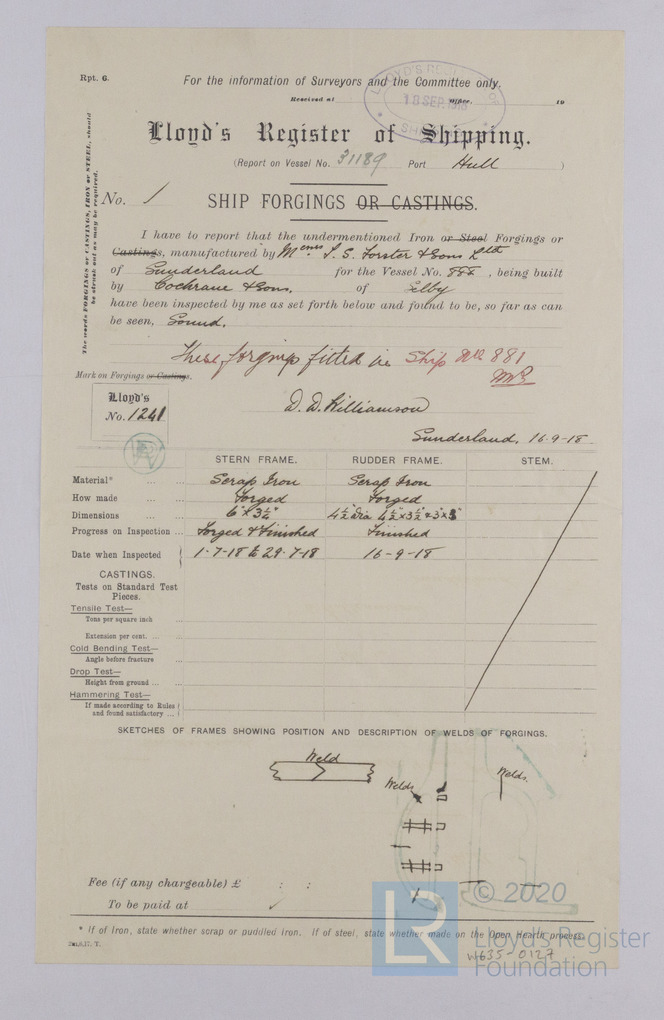 Rpt. 6.
For the information of Surveyors and the Committee only.
Received at Office, 19
LLOYD'S REGISTER OF SHIPPING
18 SEP 1918
Lloyd's Register of Shipping.
(Report on Vessel No. 31189 Port Hull )
The words FORGINGS or CASTINGS, IRON or STEEL, should
be struck out as may be required.
No. 1
SHIP FORGINGS OR CASTINGS.
I have to report that the undermentioned Iron or Steel Forgings or
Castings, manufactured by Messrs. T. S. Forster & Sons Ltd
of Sunderland for the Vessel No. 882, being built
by Cochrane & Sons. of Selby
have been inspected by me as set forth below and found to be, so far as can
be seen, Sound.
These forgings fitted in Ship No 881
Mark on Forgings or Castings.
Lloyd's
No. 1241
D. D. Williamson
Sunderland, 16-9-18
STERN FRAME. RUDDER FRAME. STEM.
Material* ... ... Scrap Iron Scrap Iron
How made ... ... Forged Forged
Dimensions ... ... 6" x 3½" 4½ dia 4½" x 3½" & 3" x
Progress on Inspection ... Forged & Finished Finished
Date when Inspected 1-7-18 to 29-7-18 16-9-18
CASTINGS.
Tests on Standard Test
Pieces.
Tensile Test—
Tons per square inch ...
Extension per cent. ... ...
Cold Bending Test—
Angle before fracture ...
Drop Test—
Height from ground ... ...
Hammering Test—
If made according to Rules
and found satisfactory ...
SKETCHES OF FRAMES SHOWING POSITION AND DESCRIPTION OF WELDS OF FORGINGS.
Weld
Welds
Welds.
Fee (if any chargeable) £ : :
To be paid at
* If of Iron, state whether scrap or puddled iron. If of steel, state whether made on the Open Hearth process.
© 2020
LR
Lloyd's Register
Foundation
W635-0127